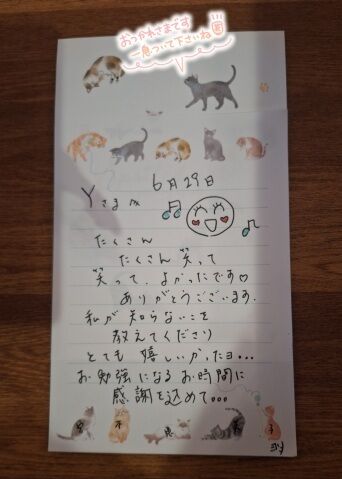 おつかれさまです
一息ついて下さいね
6月29日
Yさま
たくさん
たくさん笑って
笑って、よかったです♡
ありがとうございます。
私が知らないことを
教えてくださり
とても嬉しいかったヨ...
お勉強になるお時間に
感謝を込めて...